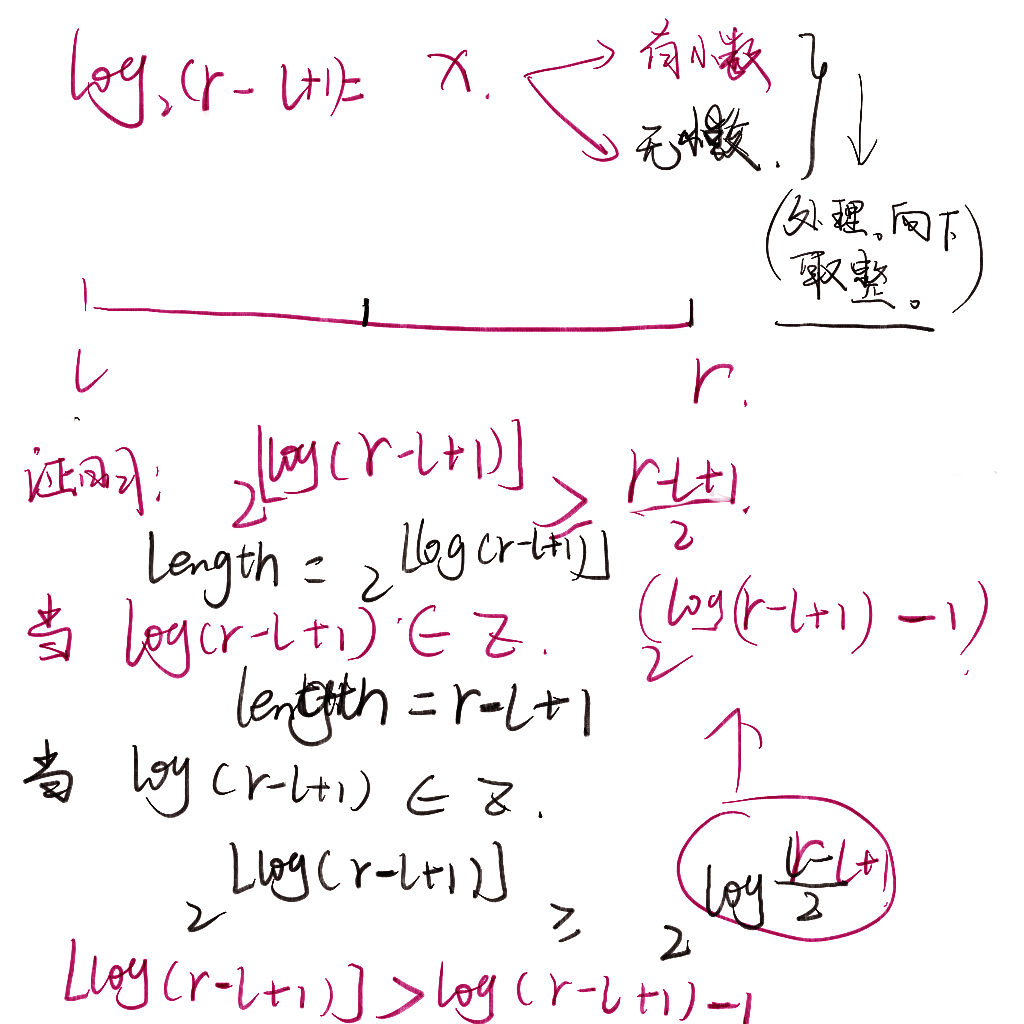 log₂(r-l+1)= x. 有小数
无小数.
(处理。向下
取整。)
l r.
证明: 2^⌊log(r-l+1)⌋ ≥ (r-l+1)/2.
Length = 2^⌊log(r-l+1)⌋
当 log(r-l+1) ∈ Z. 2^(log(r-l+1)-1).
length = r-l+1
当 log(r-l+1) ∈ Z.
2^⌊log(r-l+1)⌋ ≥ 2^log (r-l+1)/2
⌊log(r-l+1)⌋ > log(r-l+1)-1